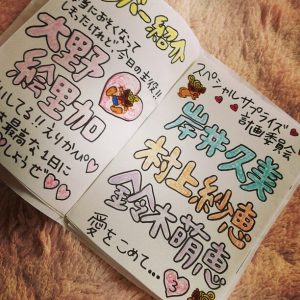 バー紹介
当におそくなって
しまったけれど、今日の主役!!
大野
絵里加
ルしてる!!えりかぴ
最高な1日に
しようぜ
スペシャルサプライズ!!
計画委員会
岸井久美
村上紗恵
鈴木萌恵
愛をこめて…